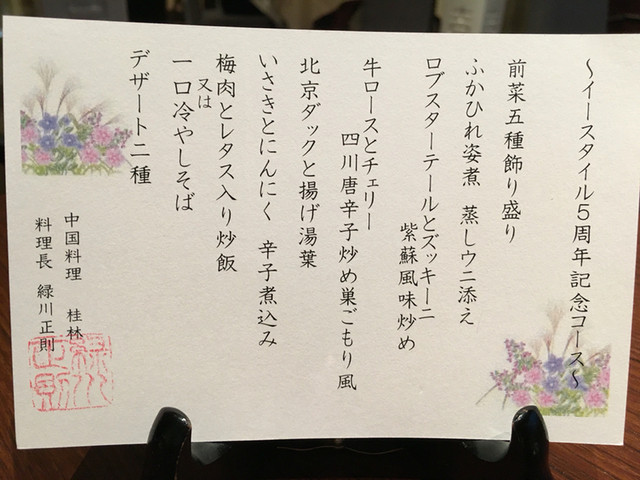 ～イースタイル５周年記念コース～
前菜五種飾り盛り
ふかひれ姿煮 蒸しウニ添え
ロブスターテールとズッキーニ
紫蘇風味炒め
牛ロースとチェリー
四川唐辛子炒め巣ごもり風
北京ダックと揚げ湯葉
いさきとにんにく 辛子煮込み
梅肉とレタス入り炒飯
又は
一口冷やしそば
デザート二種
中国料理 桂林
料理長 緑川正則